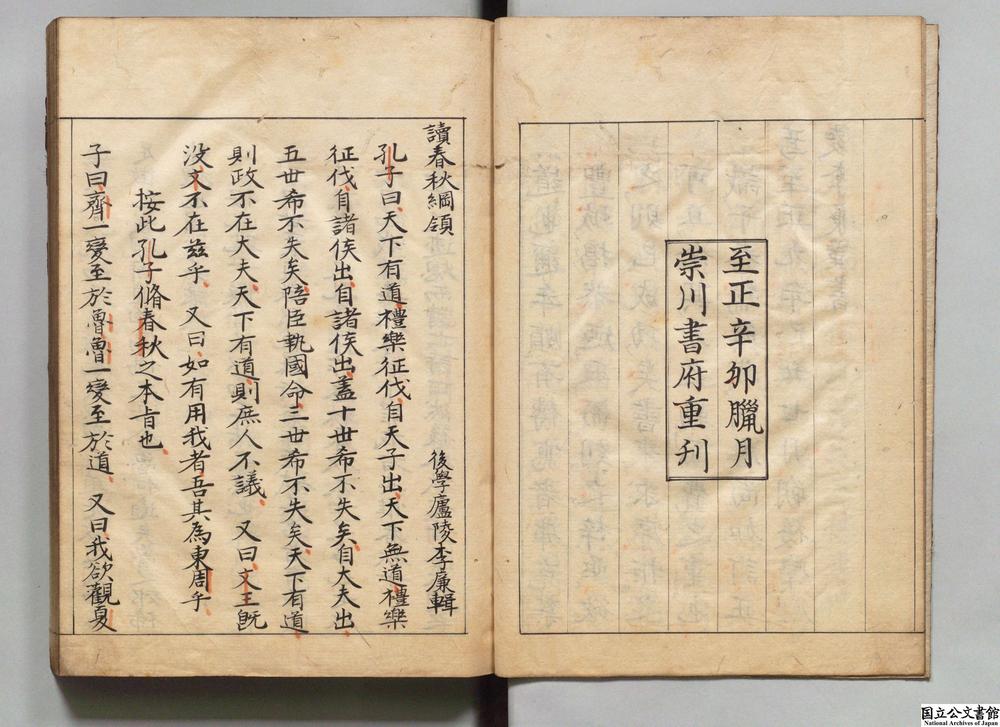 至正辛夘臘月
崇川書府重刋
讀春秋綱領
後學廬陵李廉輯
孔子曰天下有道禮樂征伐自天子出天下無道禮樂
征伐自諸侯出自諸侯出蓋十世希不失矣自大夫出
五世希不失矣陪臣執國命三世希不失矣天下有道
則政不在大夫天下有道則庶人不議 又曰文王旣
没文不在兹乎 又曰如有用我者吾其為東周乎
按此孔子脩春秋之本旨也
子曰齊一變至於魯魯一變至於道 又曰我欲觀夏
国立公文書館
National Archives of Japan